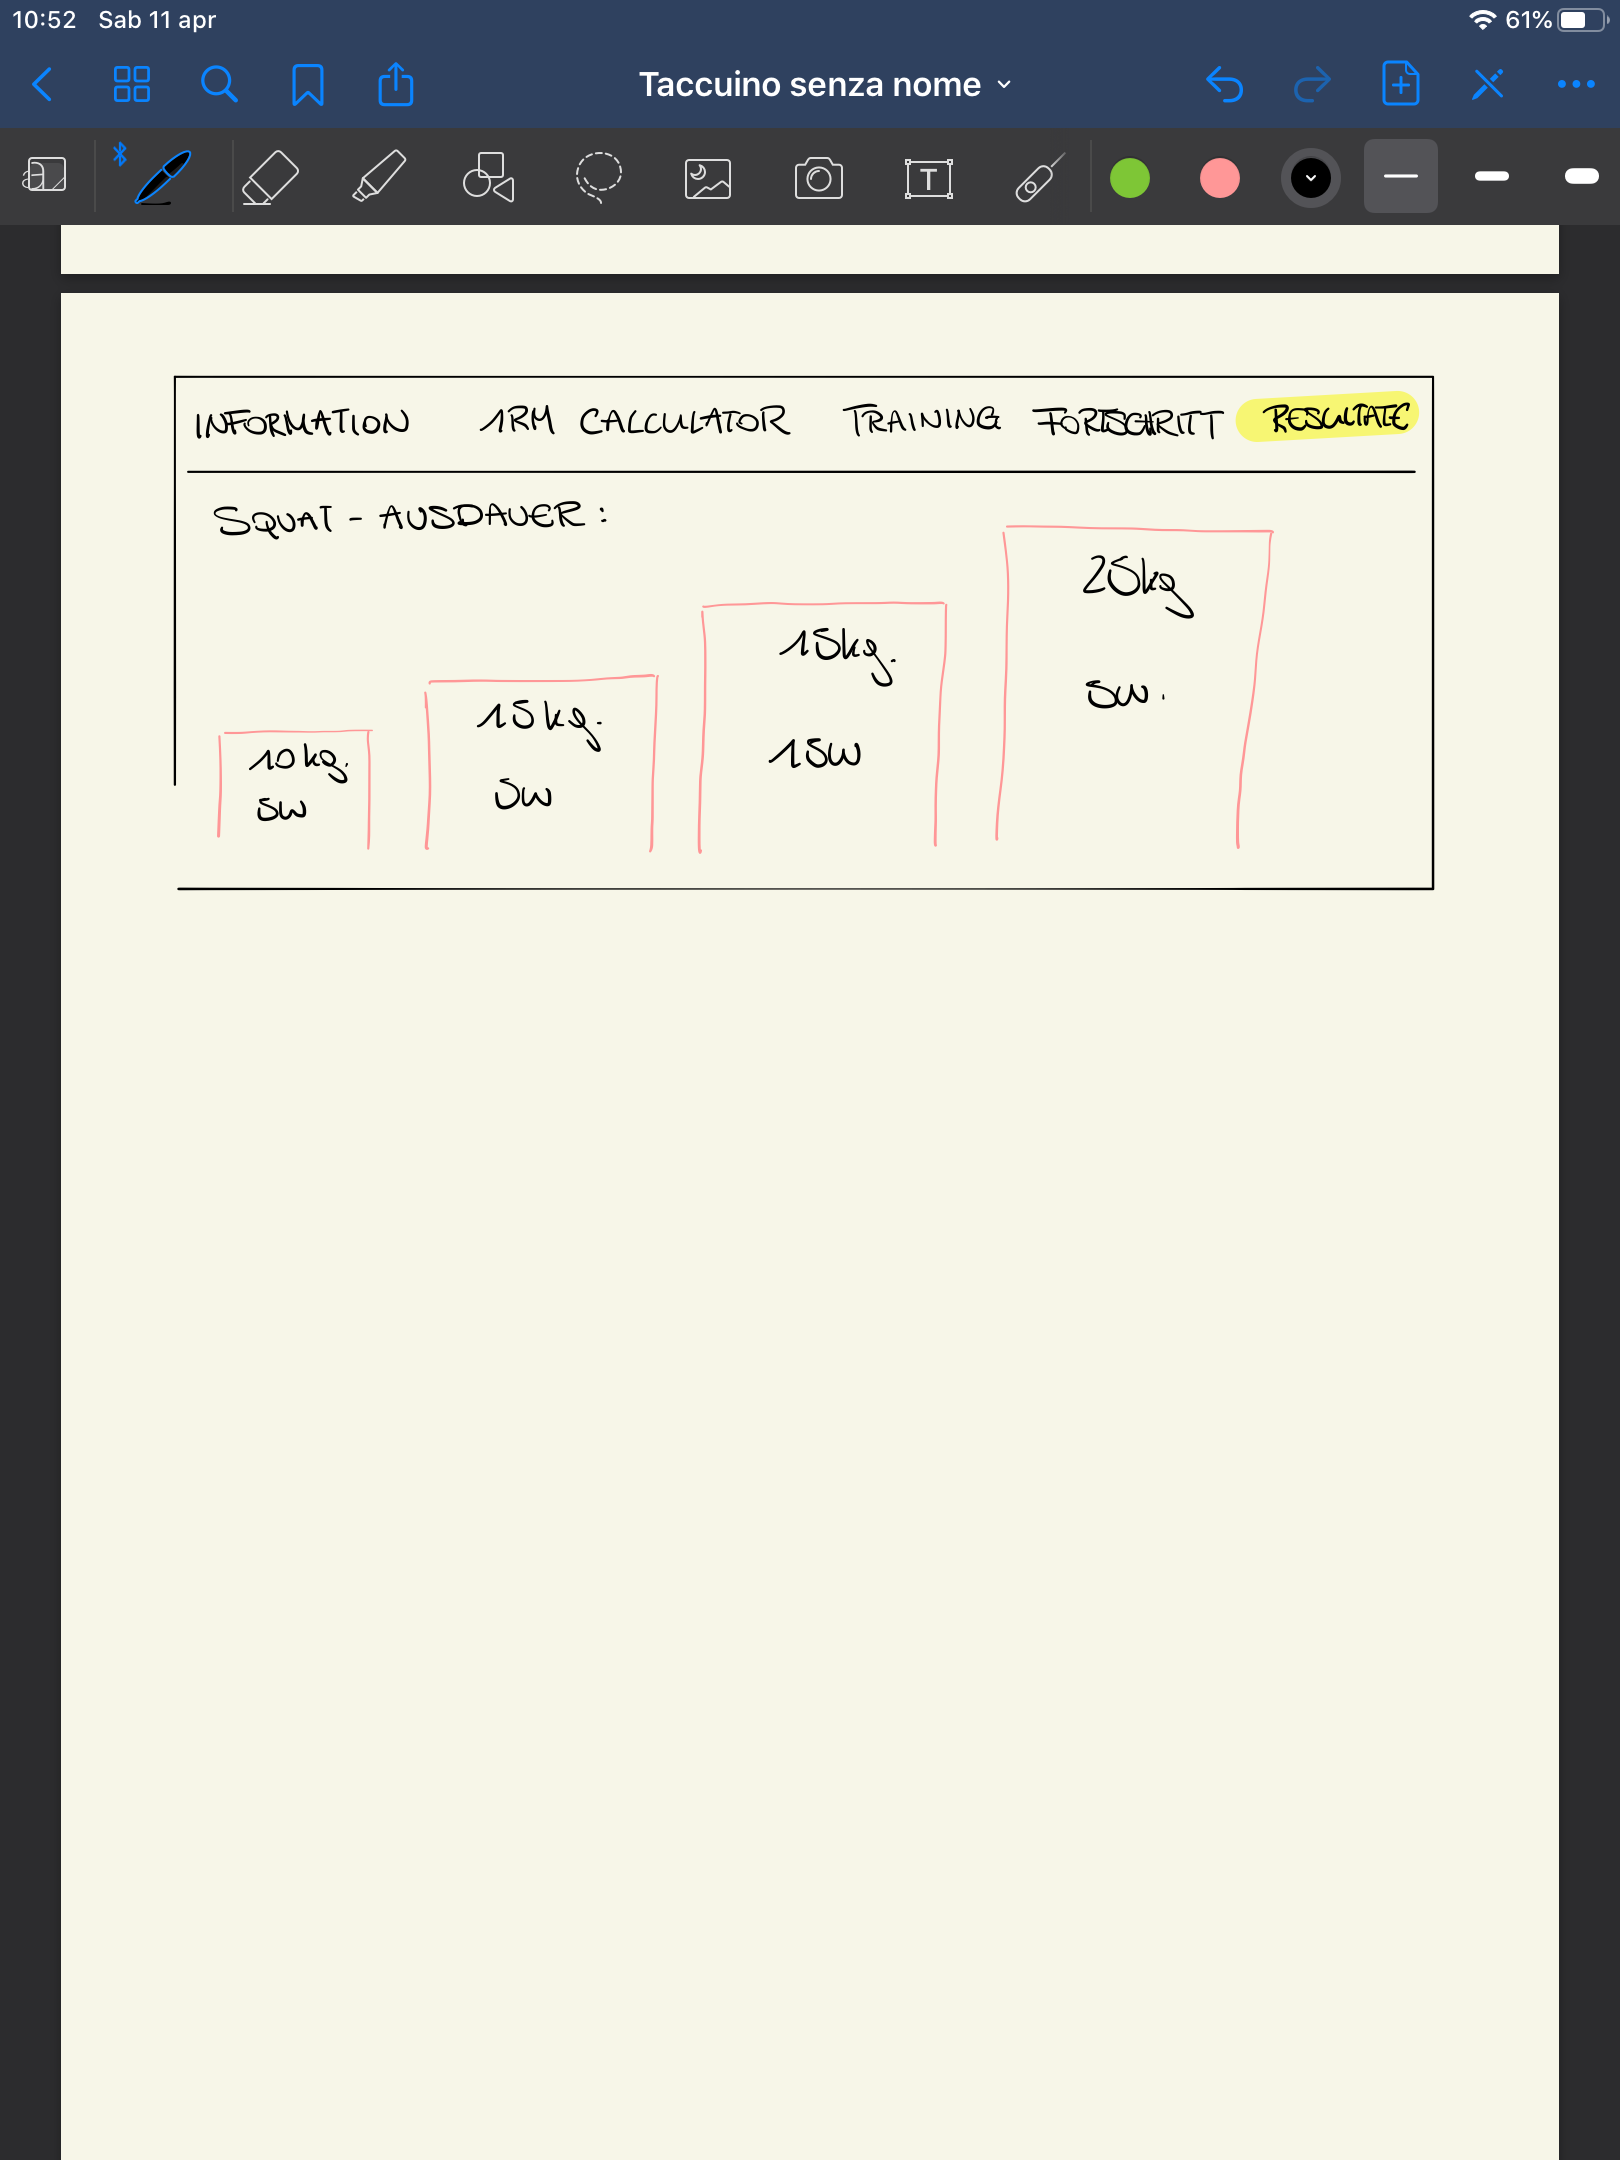 10:52 Sab 11 apr 61%
Taccuino senza nome
T
INFORMATION 1RM CALCULATOR TRAINING FORTSCHRITT RESULTATE
SQUAT - AUSDAUER :
25kg
15kg.
5W.
15kg.
15W
10kg.
5W
5W